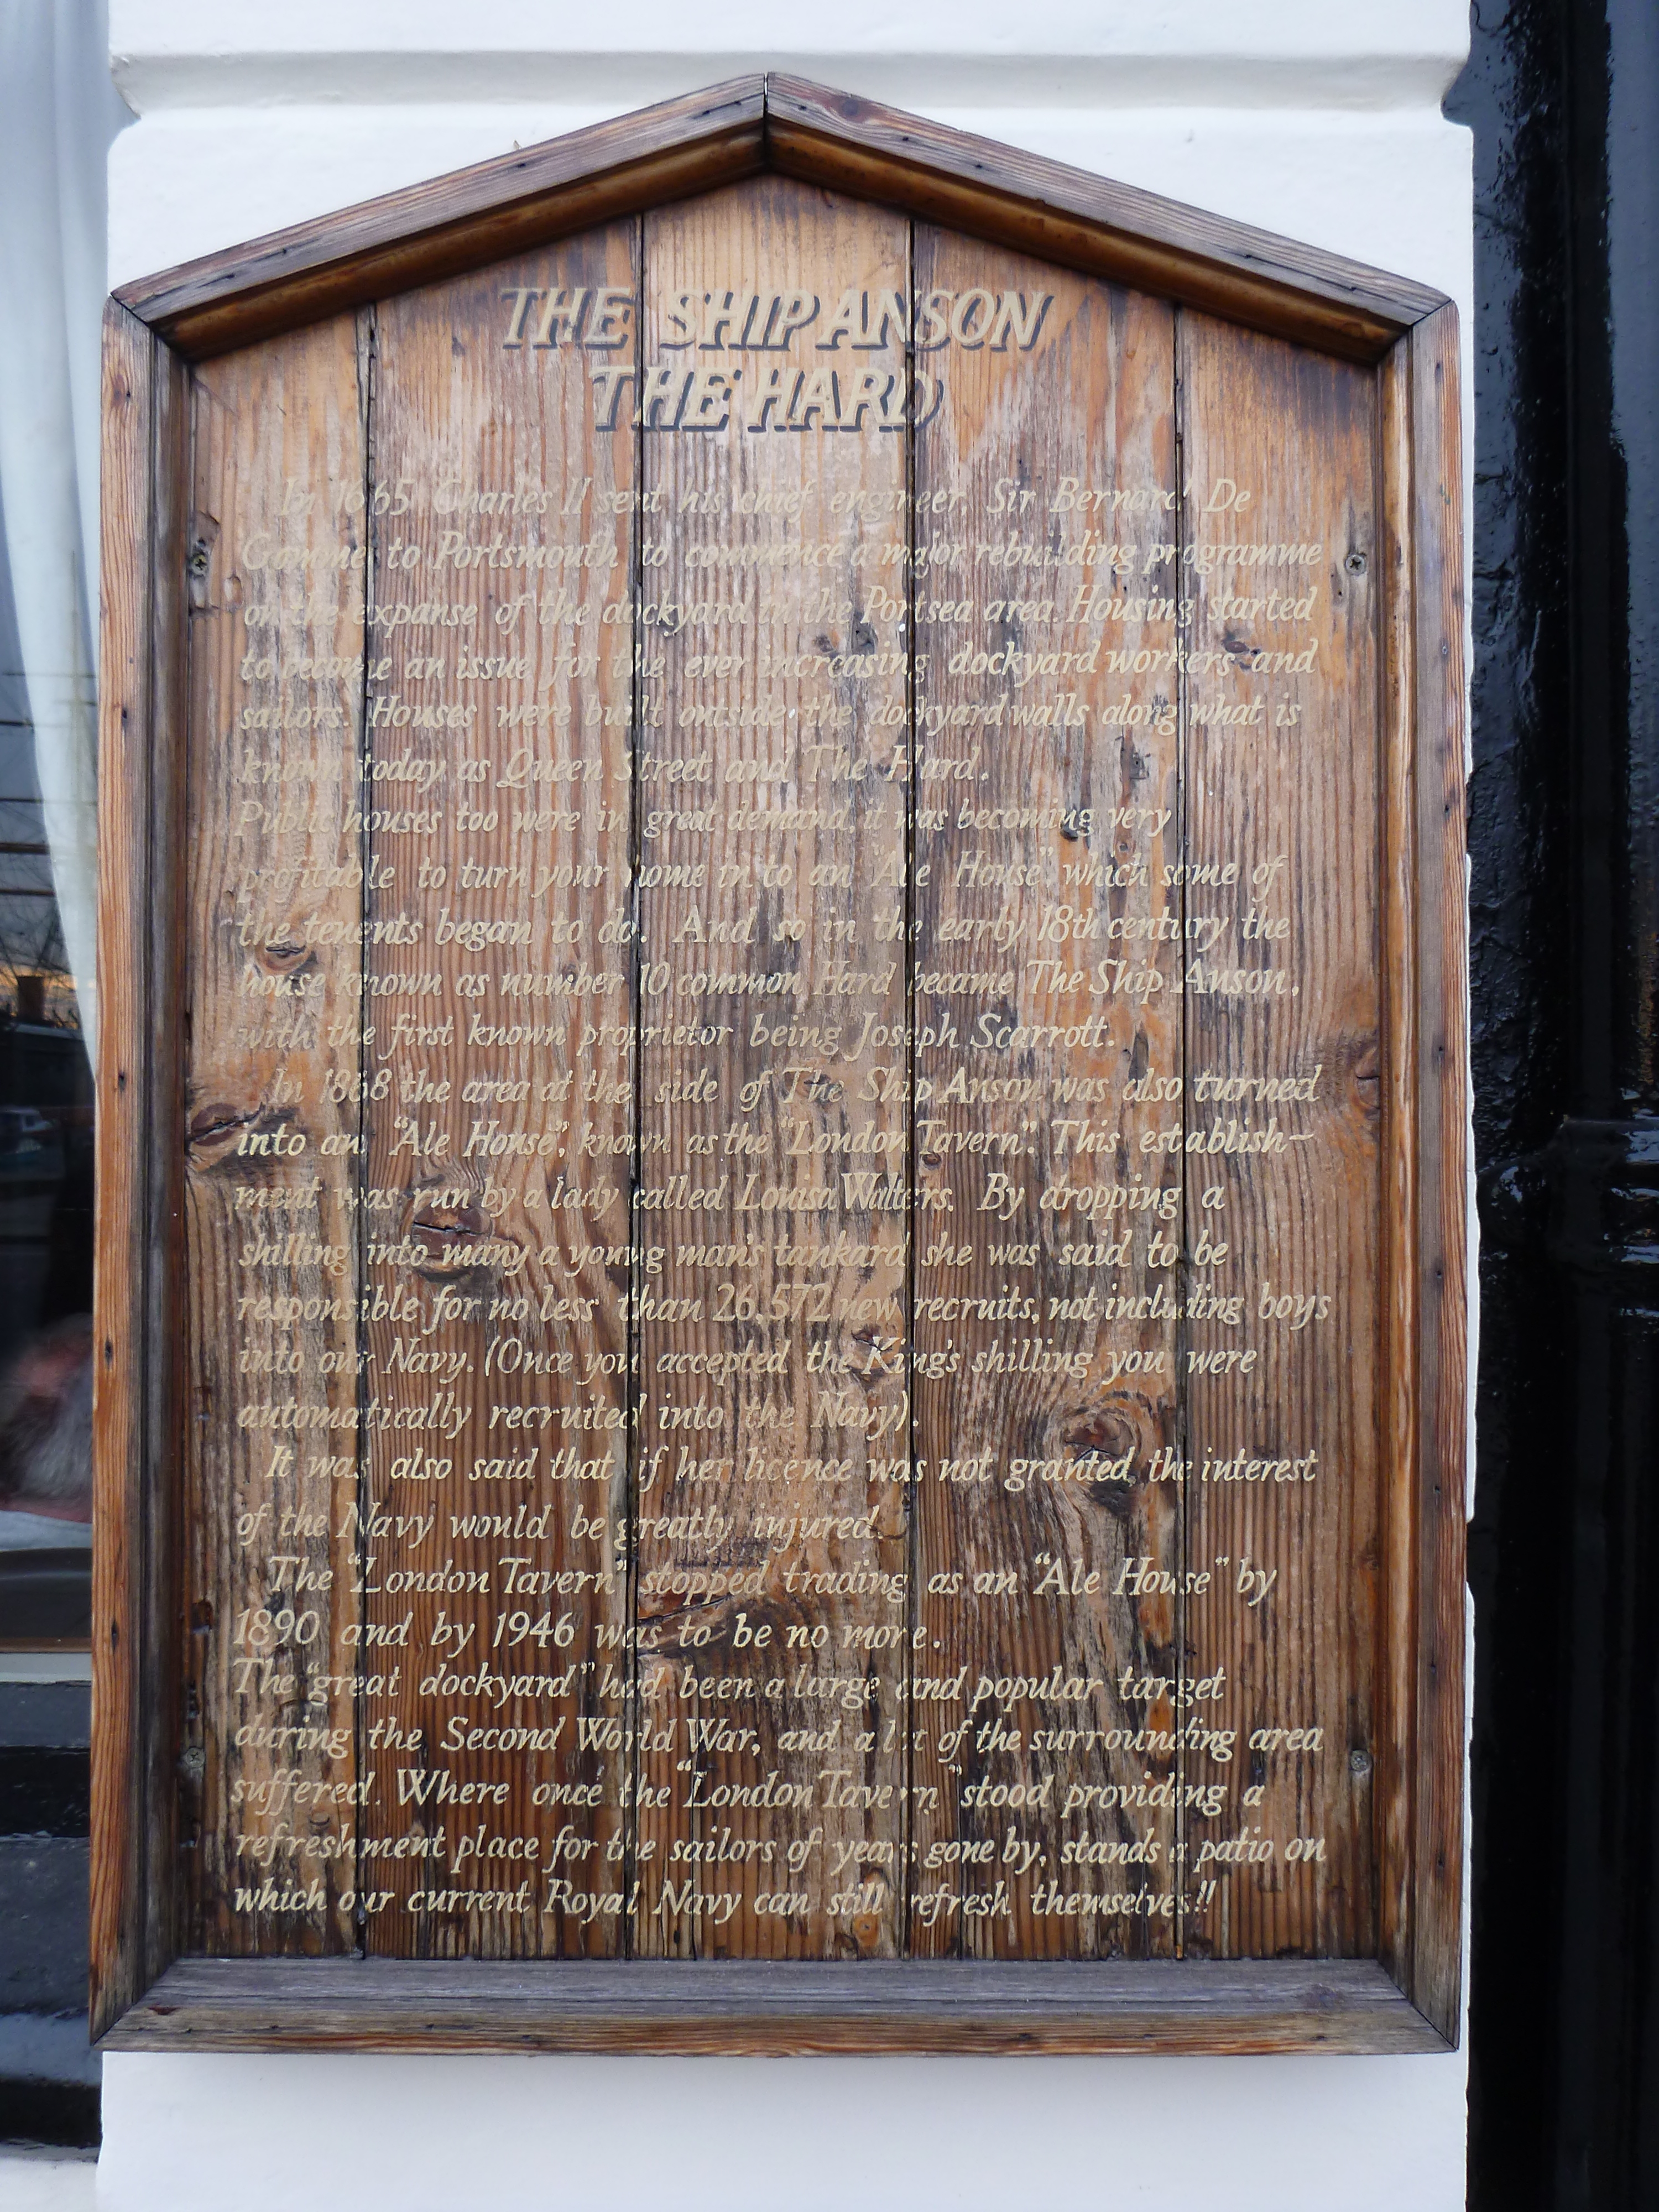 THE SHIP ANSON
THE HARD
In 1665 Charles II sent his chief engineer, Sir Bernard De
Gomme to Portsmouth to commence a major rebuilding programme
on the expanse of the dockyard in the Portsea area. Housing started
to become an issue for the ever increasing dockyard workers and
sailors. Houses were built outside the dockyard walls along what is
known today as Queen Street and The Hard.
Public houses too were in great demand, it was becoming very
profitable to turn your home in to an "Ale House" which some of
the tenents began to do. And so in the early 18th century the
house known as number 10 common Hard became The Ship Anson,
with the first known proprietor being Joseph Scarrott.
In 1868 the area at the side of The Ship Anson was also turned
into an "Ale House", known as the "London Tavern". This establish-
ment was run by a lady called Louisa Walters. By dropping a
shilling into many a young man's tankard she was said to be
responsible for no less than 26,572 new recruits, not including boys
into our Navy. (Once you accepted the King's shilling you were
automatically recruited into the Navy).
It was also said that if her licence was not granted, the interest
of the Navy would be greatly injured.
The "London Tavern" stopped trading as an "Ale House" by
1890 and by 1946 was to be no more.
The "great dockyard" had been a large and popular target
during the Second World War, and a lot of the surrounding area
suffered. Where once the "London Tavern" stood providing a
refreshment place for the sailors of years gone by, stands a patio on
which our current Royal Navy can still refresh themselves!!